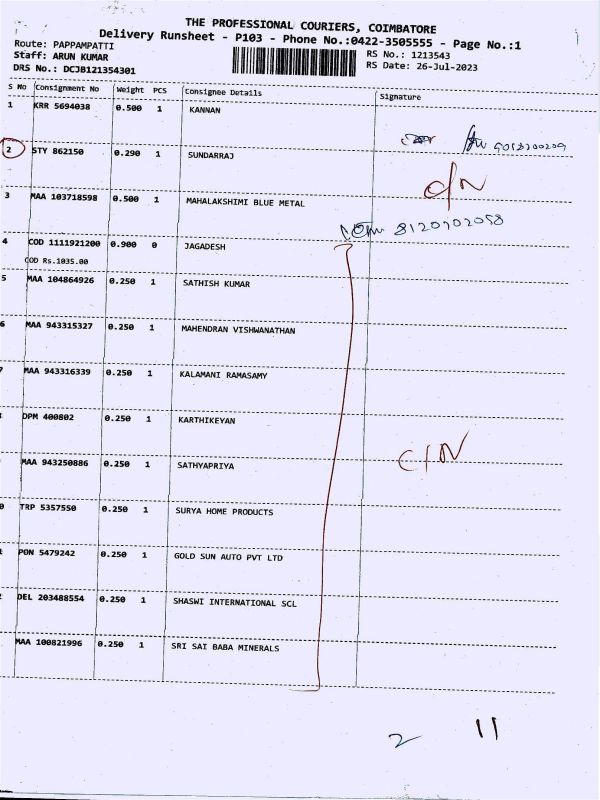 THE PROFESSIONAL COURIERS, COIMBATORE
Delivery Runsheet - P103 - Phone No.:0422-3505555 - Page No.:1
Route: PAPPAMPATTI RS No.: 1213543
Staff: ARUN KUMAR RS Date: 26-Jul-2023
DRS No.: DCJB121354301
S No Consignment No Weight PCS Consignee Details Signature
1 KRR 5694038 0.500 1 KANNAN
2 STY 862150 0.290 1 SUNDARRAJ
3 MAA 103718598 0.500 1 MAHALAKSHIMI BLUE METAL
8120702058
4 COD 1111921200 0.900 0 JAGADESH
COD Rs.1035.00
5 MAA 104864926 0.250 1 SATHISH KUMAR
6 MAA 943315327 0.250 1 MAHENDRAN VISHWANATHAN
7 MAA 943316339 0.250 1 KALAMANI RAMASAMY
DPM 400802 0.250 1 KARTHIKEYAN
C/N
MAA 943250886 0.250 1 SATHYAPRIYA
0 TRP 5357550 0.250 1 SURYA HOME PRODUCTS
PON 5479242 0.250 1 GOLD SUN AUTO PVT LTD
2 DEL 203488554 0.250 1 SHASWI INTERNATIONAL SCL
MAA 100821996 0.250 1 SRI SAI BABA MINERALS
2 11